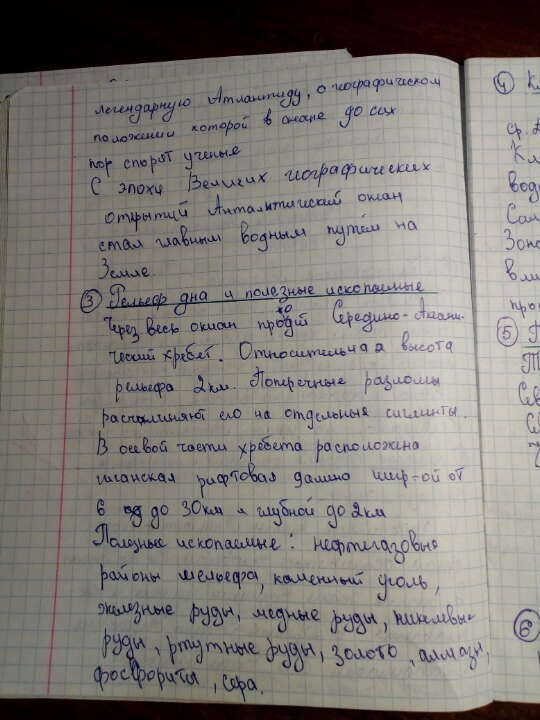 легендарную Атлантиду, о географическом
положении которой в океане до сих
пор спорят ученые
С эпохи Великих географических
открытий Атлантический океан
стал главным водным путём на
Земле.
③ Рельеф дна и полезные ископаемые
Через весь океан проходит Середино-Атланти-
ческий хребет. Относительная высота
рельефа 2км. Поперечные разломы
расчаминяют его на отдельные сигминты.
В осевой части хребета расположена
гиганская рифтовая далино шир-ой от
6 до 30км и глубной до 2км
Полезные ископаемые: нефтегазовые
районы шельефа, каменный уголь,
железные руды, медные руды, никелвые
руды, ртутные руды, золото, алмазы,
фосфориты, сера.
④ Кл
ср. д
Кл
водн
Сол
Зон
вли
про
⑤
Сев
⑥